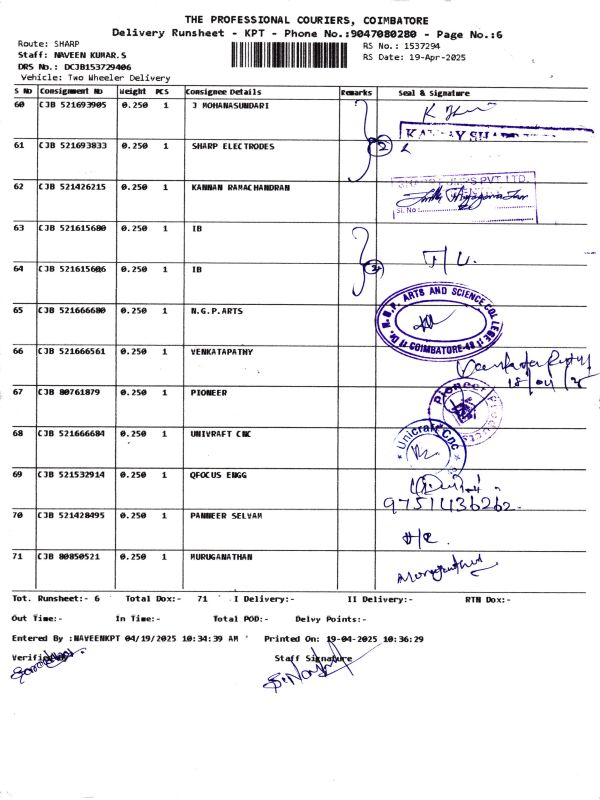 THE PROFESSIONAL COURIERS, COIMBATORE
Delivery Runsheet - KPT - Phone No.:9047080280 - Page No.:6
Route: SHARP
RS No.: 1537294
Staff: NAVEEN KUMAR.S
RS Date: 19-Apr-2025
DRS No.: DCJB153729406
Vehicle: Two Wheeler Delivery
S No Consignment No Weight PCS Consignee Details Remarks Seal & Signature
60 CJB 521693905 0.250 1 J MOHANASUNDARI
61 CJB 521693833 0.250 1 SHARP ELECTRODES 2
62 CJB 521426215 0.250 1 KANNAN RAMACHANDRAN
PVT.LTD.
Sl. No :
63 CJB 521615680 0.250 1 IB
64 CJB 521615606 0.250 1 IB
65 CJB 521666680 0.250 1 N.G.P.ARTS
Dr. N.G.P. ARTS AND SCIENCE COLLEGE
COIMBATORE-48
66 CJB 521666561 0.250 1 VENKATAPATHY
18/04/
67 CJB 80761879 0.250 1 PIONEER
Pioneer Products
68 CJB 521666684 0.250 1 UNIVRAFT CNC
Unicraft Cnc
69 CJB 521532914 0.250 1 QFOCUS ENGG
9751436262
70 CJB 521428495 0.250 1 PANNEER SELVAM
71 CJB 80850521 0.250 1 MURUGANATHAN
Muruganathan
Tot. Runsheet:- 6 Total Dox:- 71 I Delivery:- II Delivery:- RTN Dox:-
Out Time:- In Time:- Total POD:- Delvy Points:-
Entered By :NAVEENKPT 04/19/2025 10:34:39 AM Printed On: 19-04-2025 10:36:29
Staff Signature